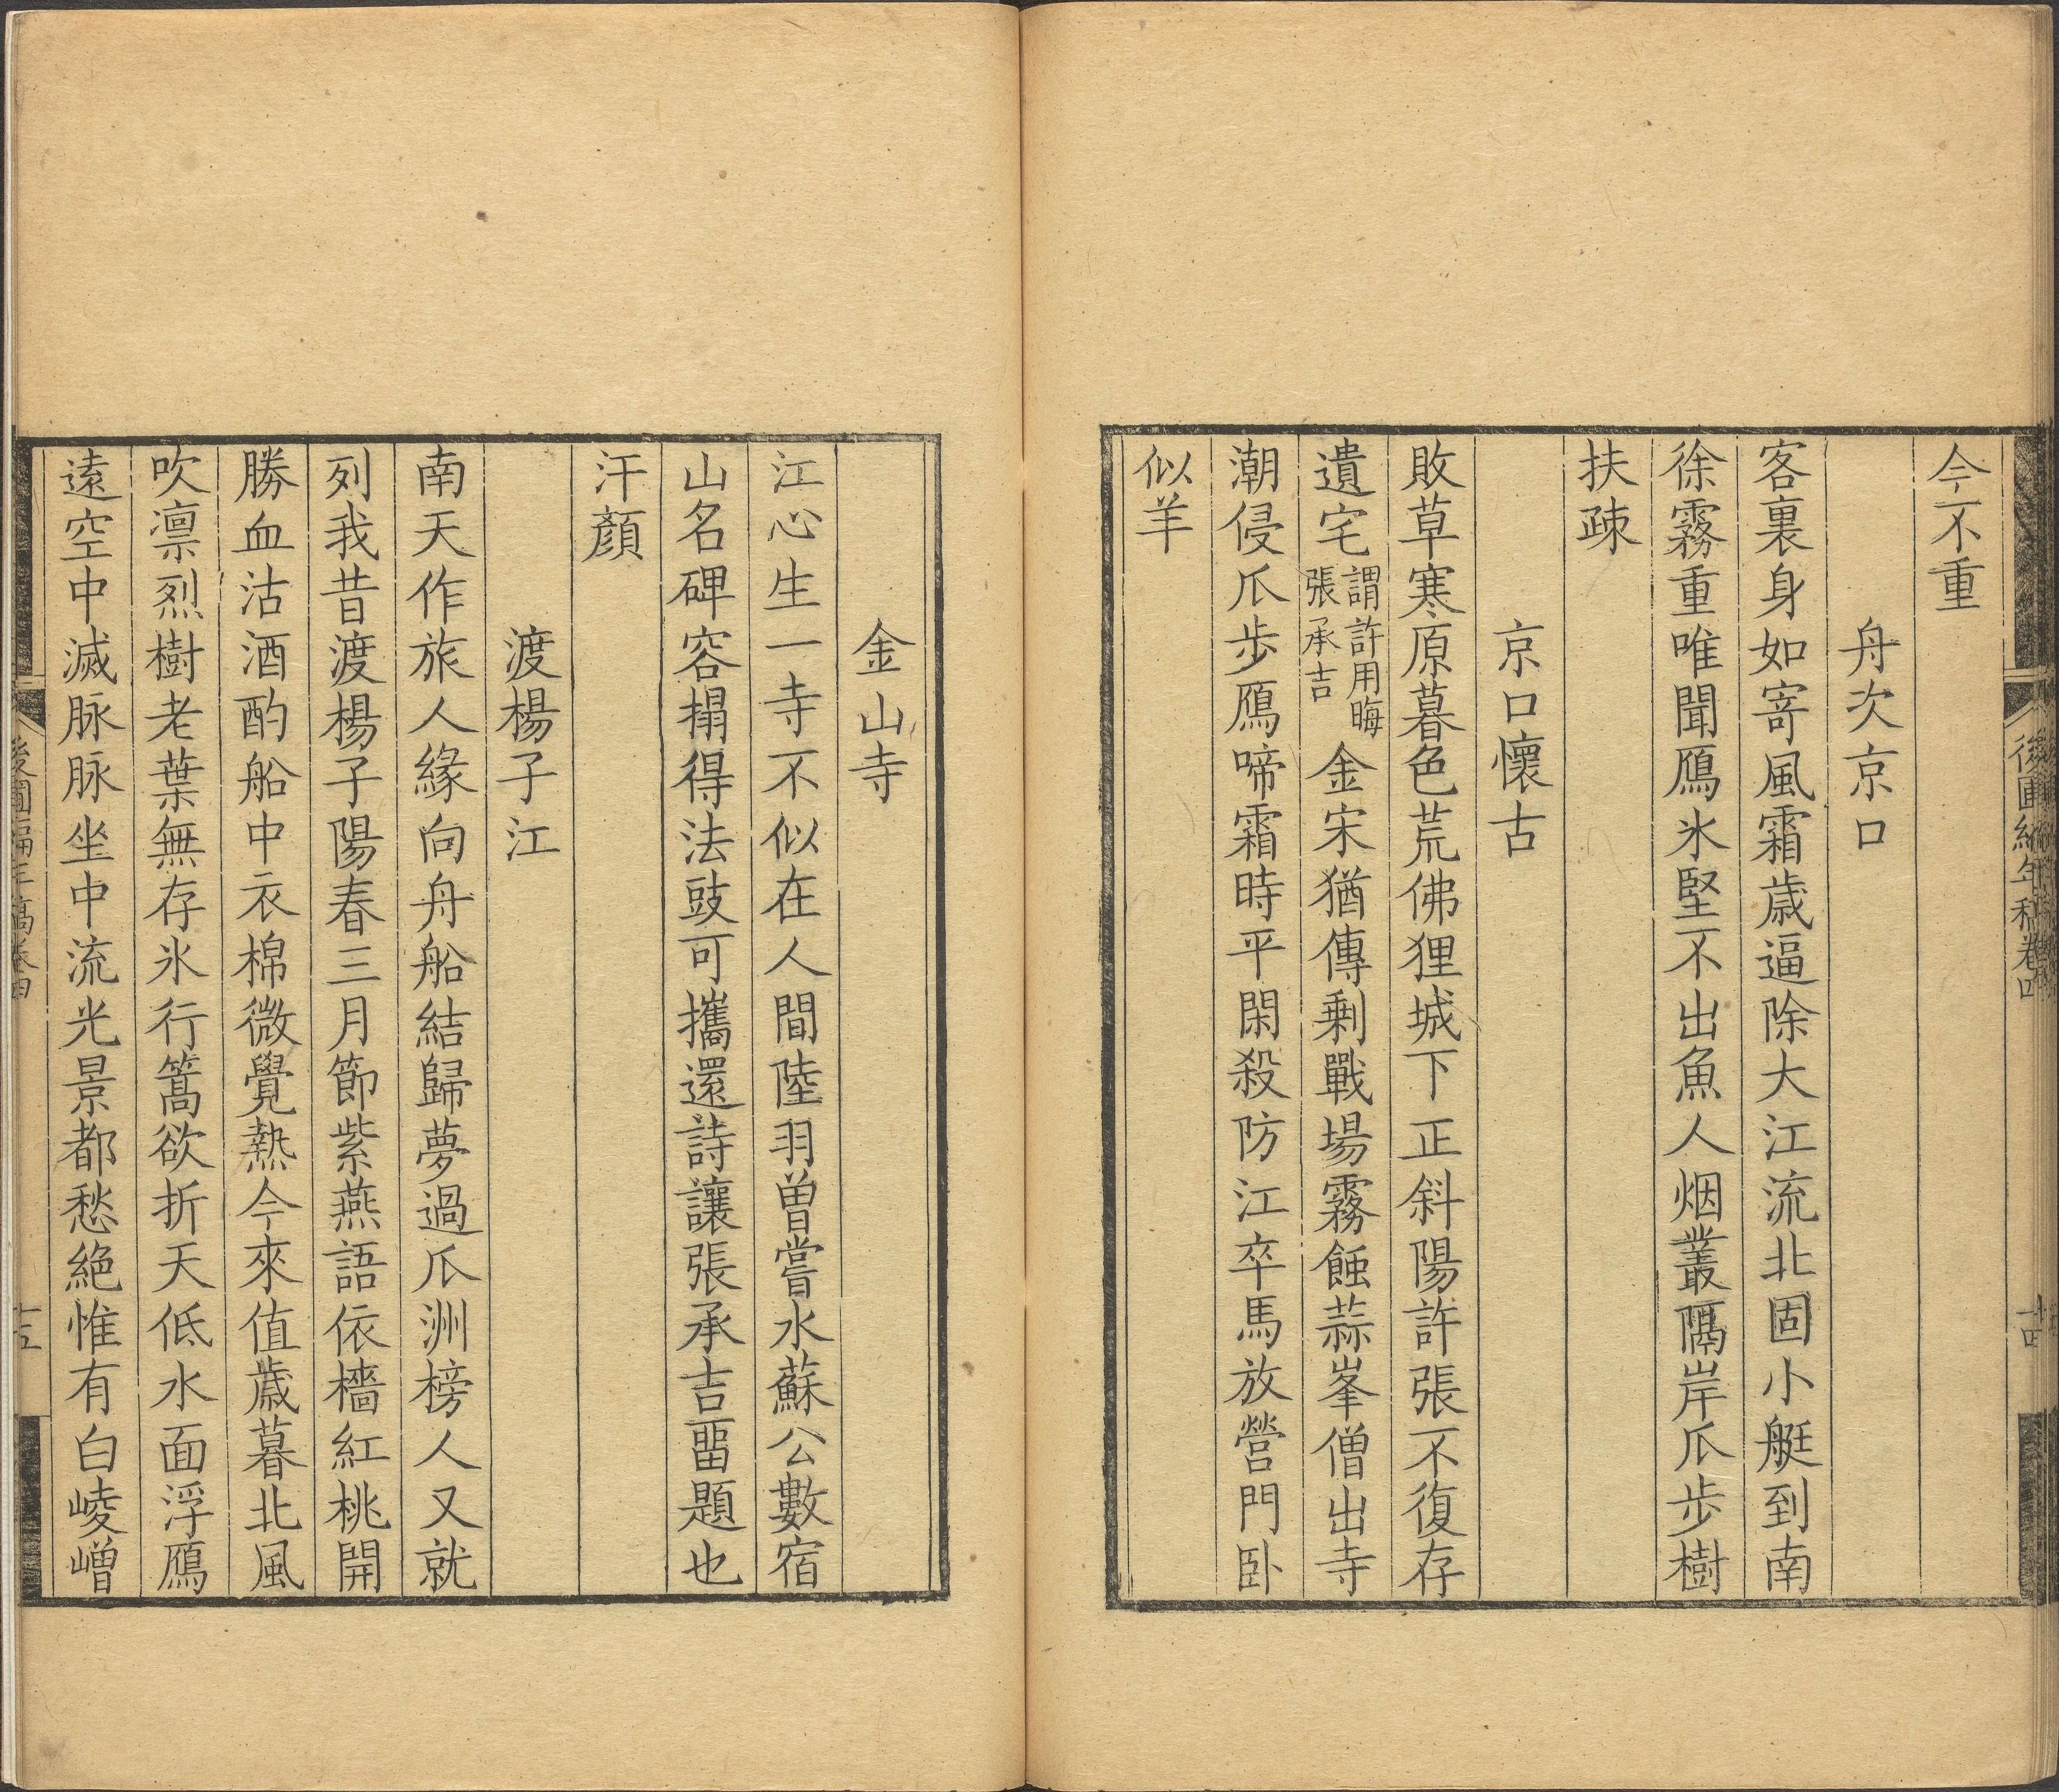 今不重
舟次京口
客裏身如寄風霜歲逼除大江流北固小艇到南
徐霧重唯聞鴈氷堅不出魚人烟叢隔岸瓜步樹
扶疎
京口懷古
敗草寒原暮色荒佛狸城下正斜陽許張不復存
遺宅謂許用晦張承吉金宋猶傳剩戰場霧蝕蒜峯僧出寺
潮侵瓜步鴈啼霜時平閑殺防江卒馬放營門卧
似羊
後圃編年稿卷四
十四
金山寺
江心生一寺不似在人間陸羽曾嘗水蘇公數宿
山名碑容搨得法豉可攜還詩讓張承吉畱題也
汗顏
渡楊子江
南天作旅人緣向舟船結歸夢過瓜洲榜人又就
列我昔渡楊子陽春三月節紫燕語依檣紅桃開
勝血沽酒酌船中衣棉微覺熱今來值歲暮北風
吹凛烈樹老葉無存氷行篙欲折天低水面浮鴈
遠空中滅脉脉坐中流光景都愁絕惟有白崚嶒
後圃編年稿卷四
十五